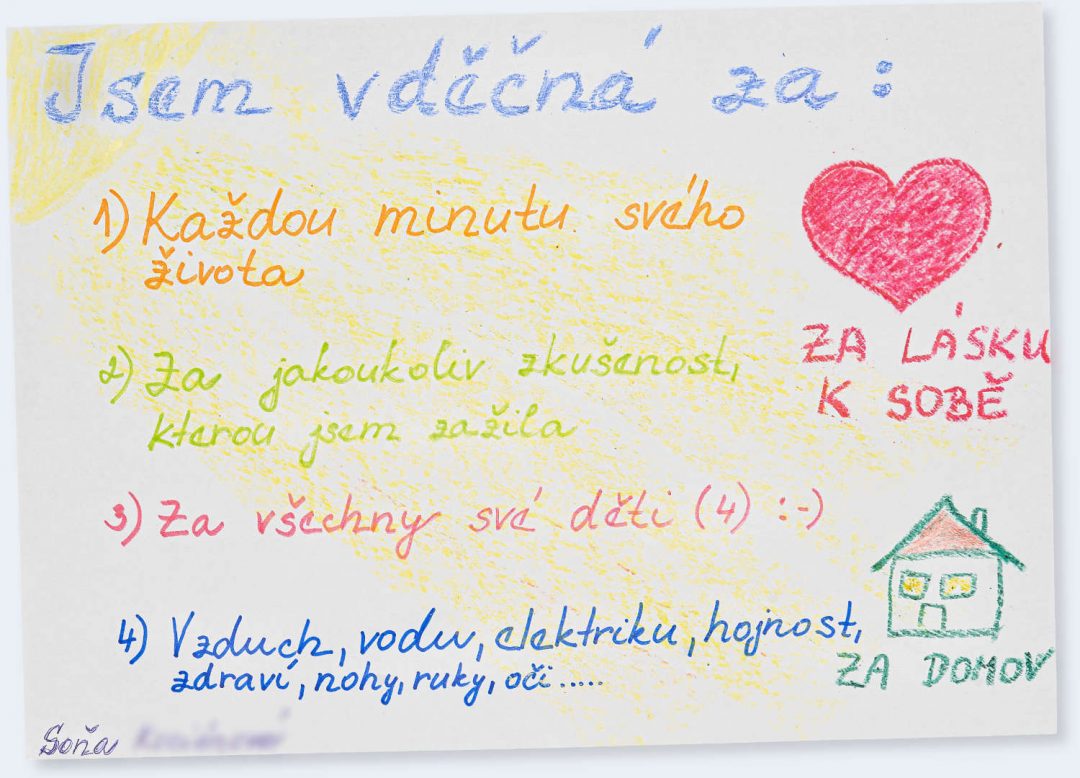 Jsem vděčná za:
1) Každou minutu svého
života
2) Za jakoukoliv zkušenost,
kterou jsem zažila
3) Za všechny své děti (4) :-)
4) Vzduch, vodu, elektriku, hojnost,
zdraví, nohy, ruky, oči.....
ZA LÁSKU
K SOBĚ
ZA DOMOV
Soňa